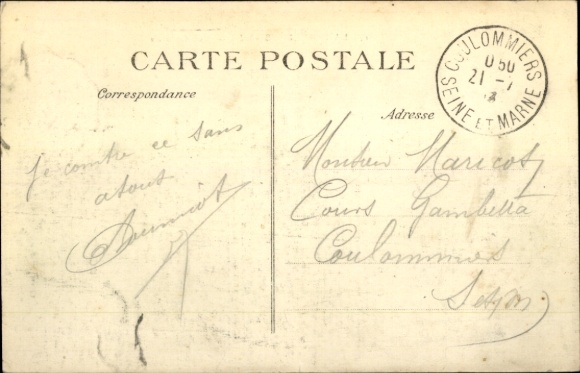 CARTE POSTALE
Correspondance
Je contre ce sans
atout
Adresse
Monsieur Maricot
Cours Gambetta
Coulommiers
S et M
COULOMMIERS
0 50
21 - 7
SEINE ET MARNE